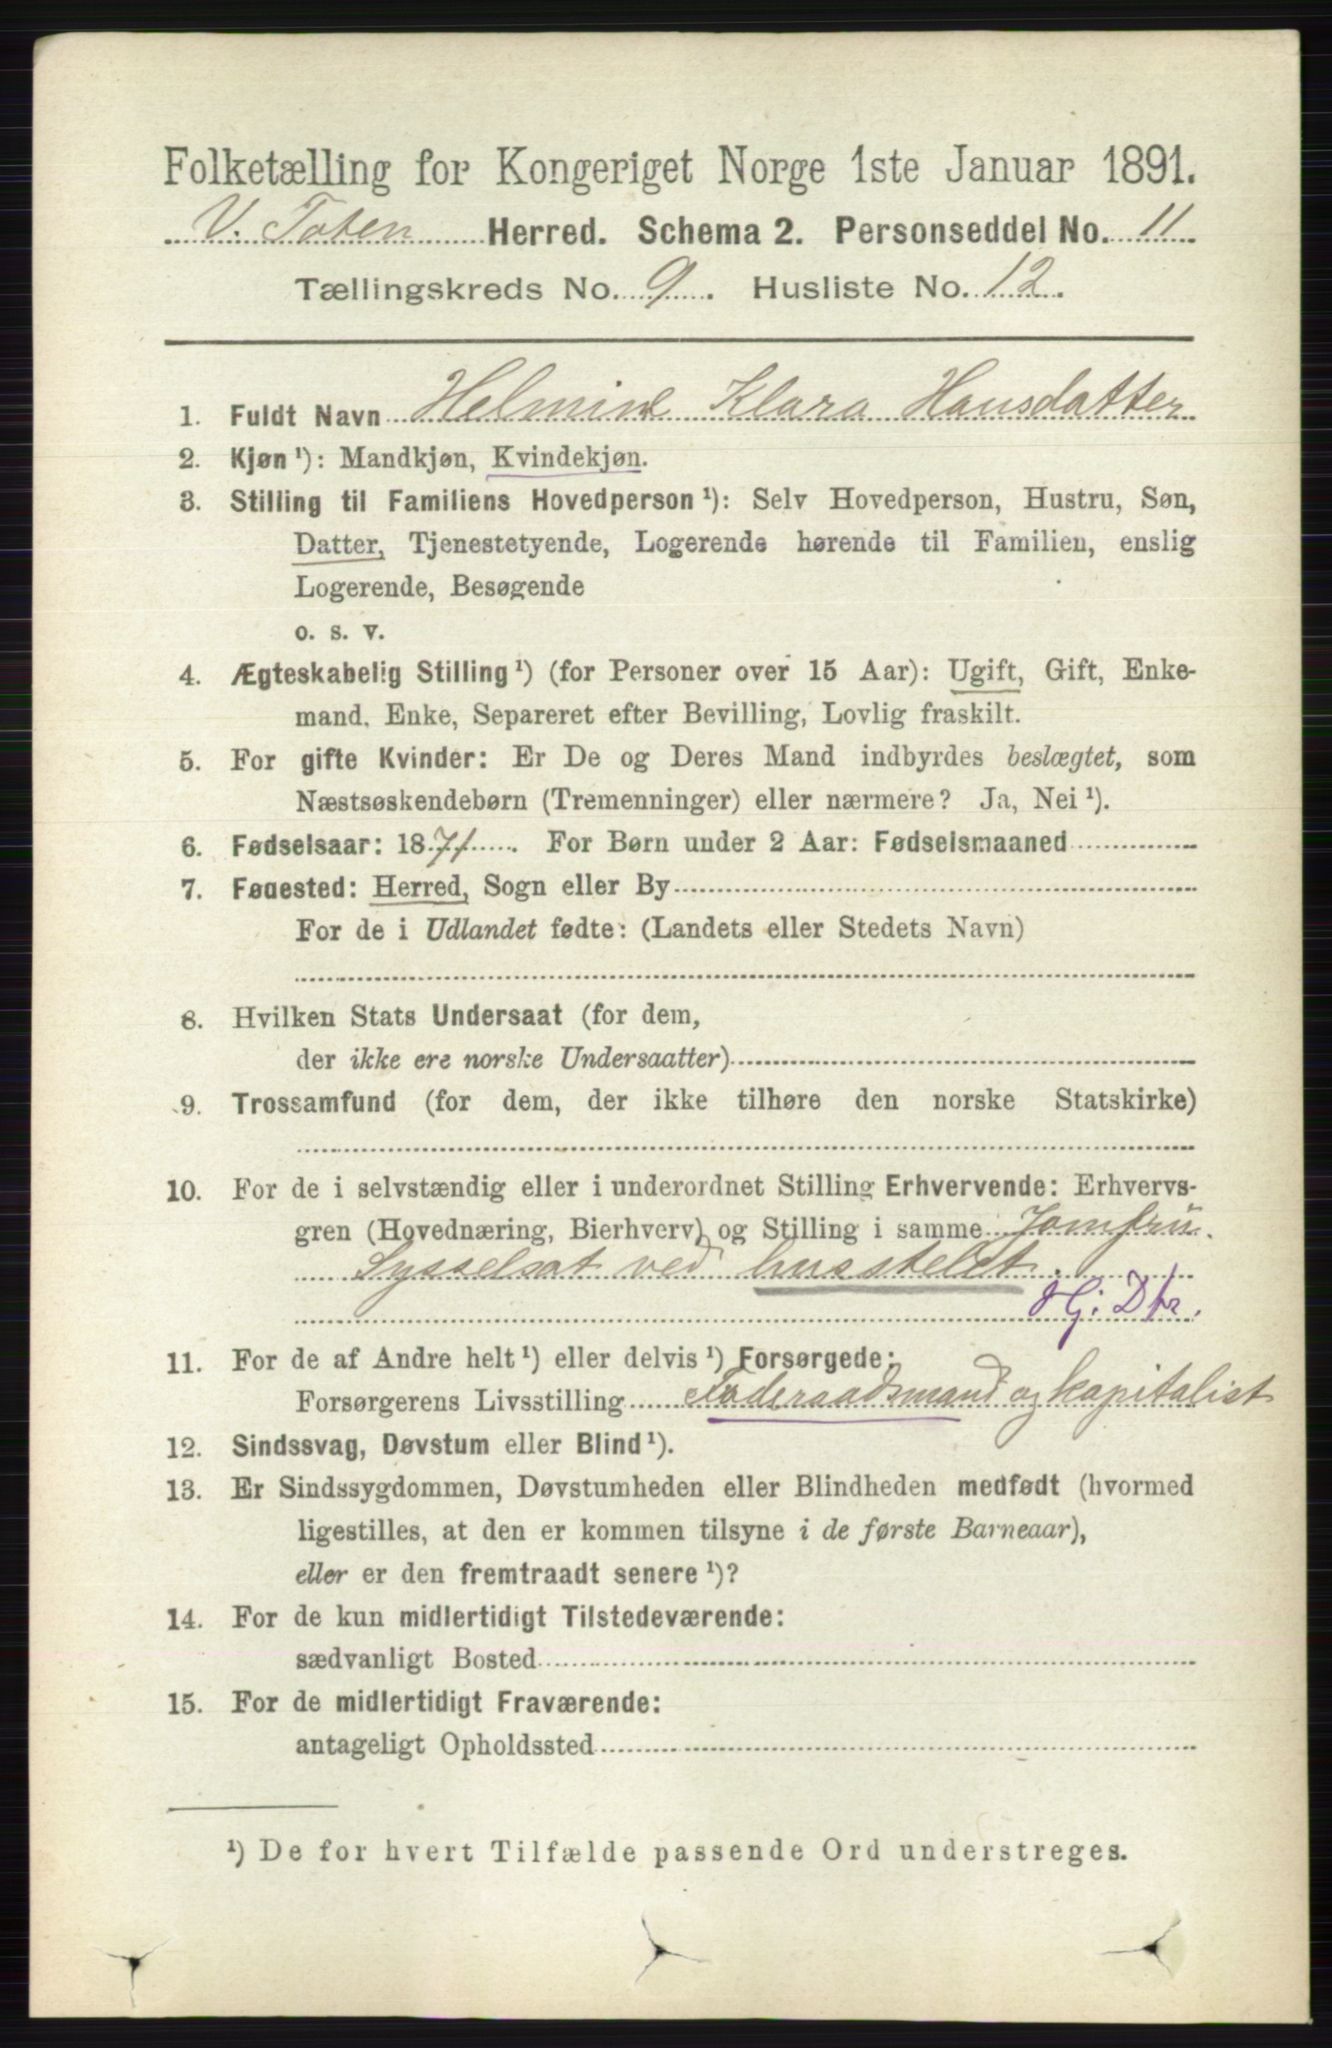 Folketælling for Kongeriget Norge 1ste Januar 1891.
V. Toten Herred. Schema 2. Personseddel No. 11
Tællingskreds No. 9. Husliste No. 12.
1. Fuldt Navn Helmine Klara Hansdatter
2. Kjøn ¹): Mandkjøn, Kvindekjøn.
3. Stilling til Familiens Hovedperson ¹): Selv Hovedperson, Hustru, Søn,
Datter, Tjenestetyende, Logerende hørende til Familien, enslig
Logerende, Besøgende
o. s. v.
4. Ægteskabelig Stilling ¹) (for Personer over 15 Aar): Ugift, Gift, Enke-
mand, Enke, Separeret efter Bevilling, Lovlig fraskilt.
5. For gifte Kvinder: Er De og Deres Mand indbyrdes beslægtet, som
Næstsøskendebørn (Tremenninger) eller nærmere? Ja, Nei ¹).
6. Fødselsaar: 1871. For Børn under 2 Aar: Fødselsmaaned
7. Fødested: Herred, Sogn eller By
For de i Udlandet fødte: (Landets eller Stedets Navn)
8. Hvilken Stats Undersaat (for dem,
der ikke ere norske Undersaatter)
9. Trossamfund (for dem, der ikke tilhøre den norske Statskirke)
10. For de i selvstændig eller i underordnet Stilling Erhvervende: Erhvervs-
gren (Hovednæring, Bierhverv) og Stilling i samme Jomfru.
Sysselsat ved husstelet.
Hj. Dtr.
11. For de af Andre helt ¹) eller delvis ¹) Forsørgede:
Forsørgerens Livsstilling Foderaadsmand og kapitalist
12. Sindssvag, Døvstum eller Blind ¹).
13. Er Sindssygdommen, Døvstumheden eller Blindheden medfødt (hvormed
ligestilles, at den er kommen tilsyne i de første Barneaar),
eller er den fremtraadt senere ¹)?
14. For de kun midlertidigt Tilstedeværende:
sædvanligt Bosted
15. For de midlertidigt Fraværende:
antageligt Opholdssted
¹) De for hvert Tilfælde passende Ord understreges.